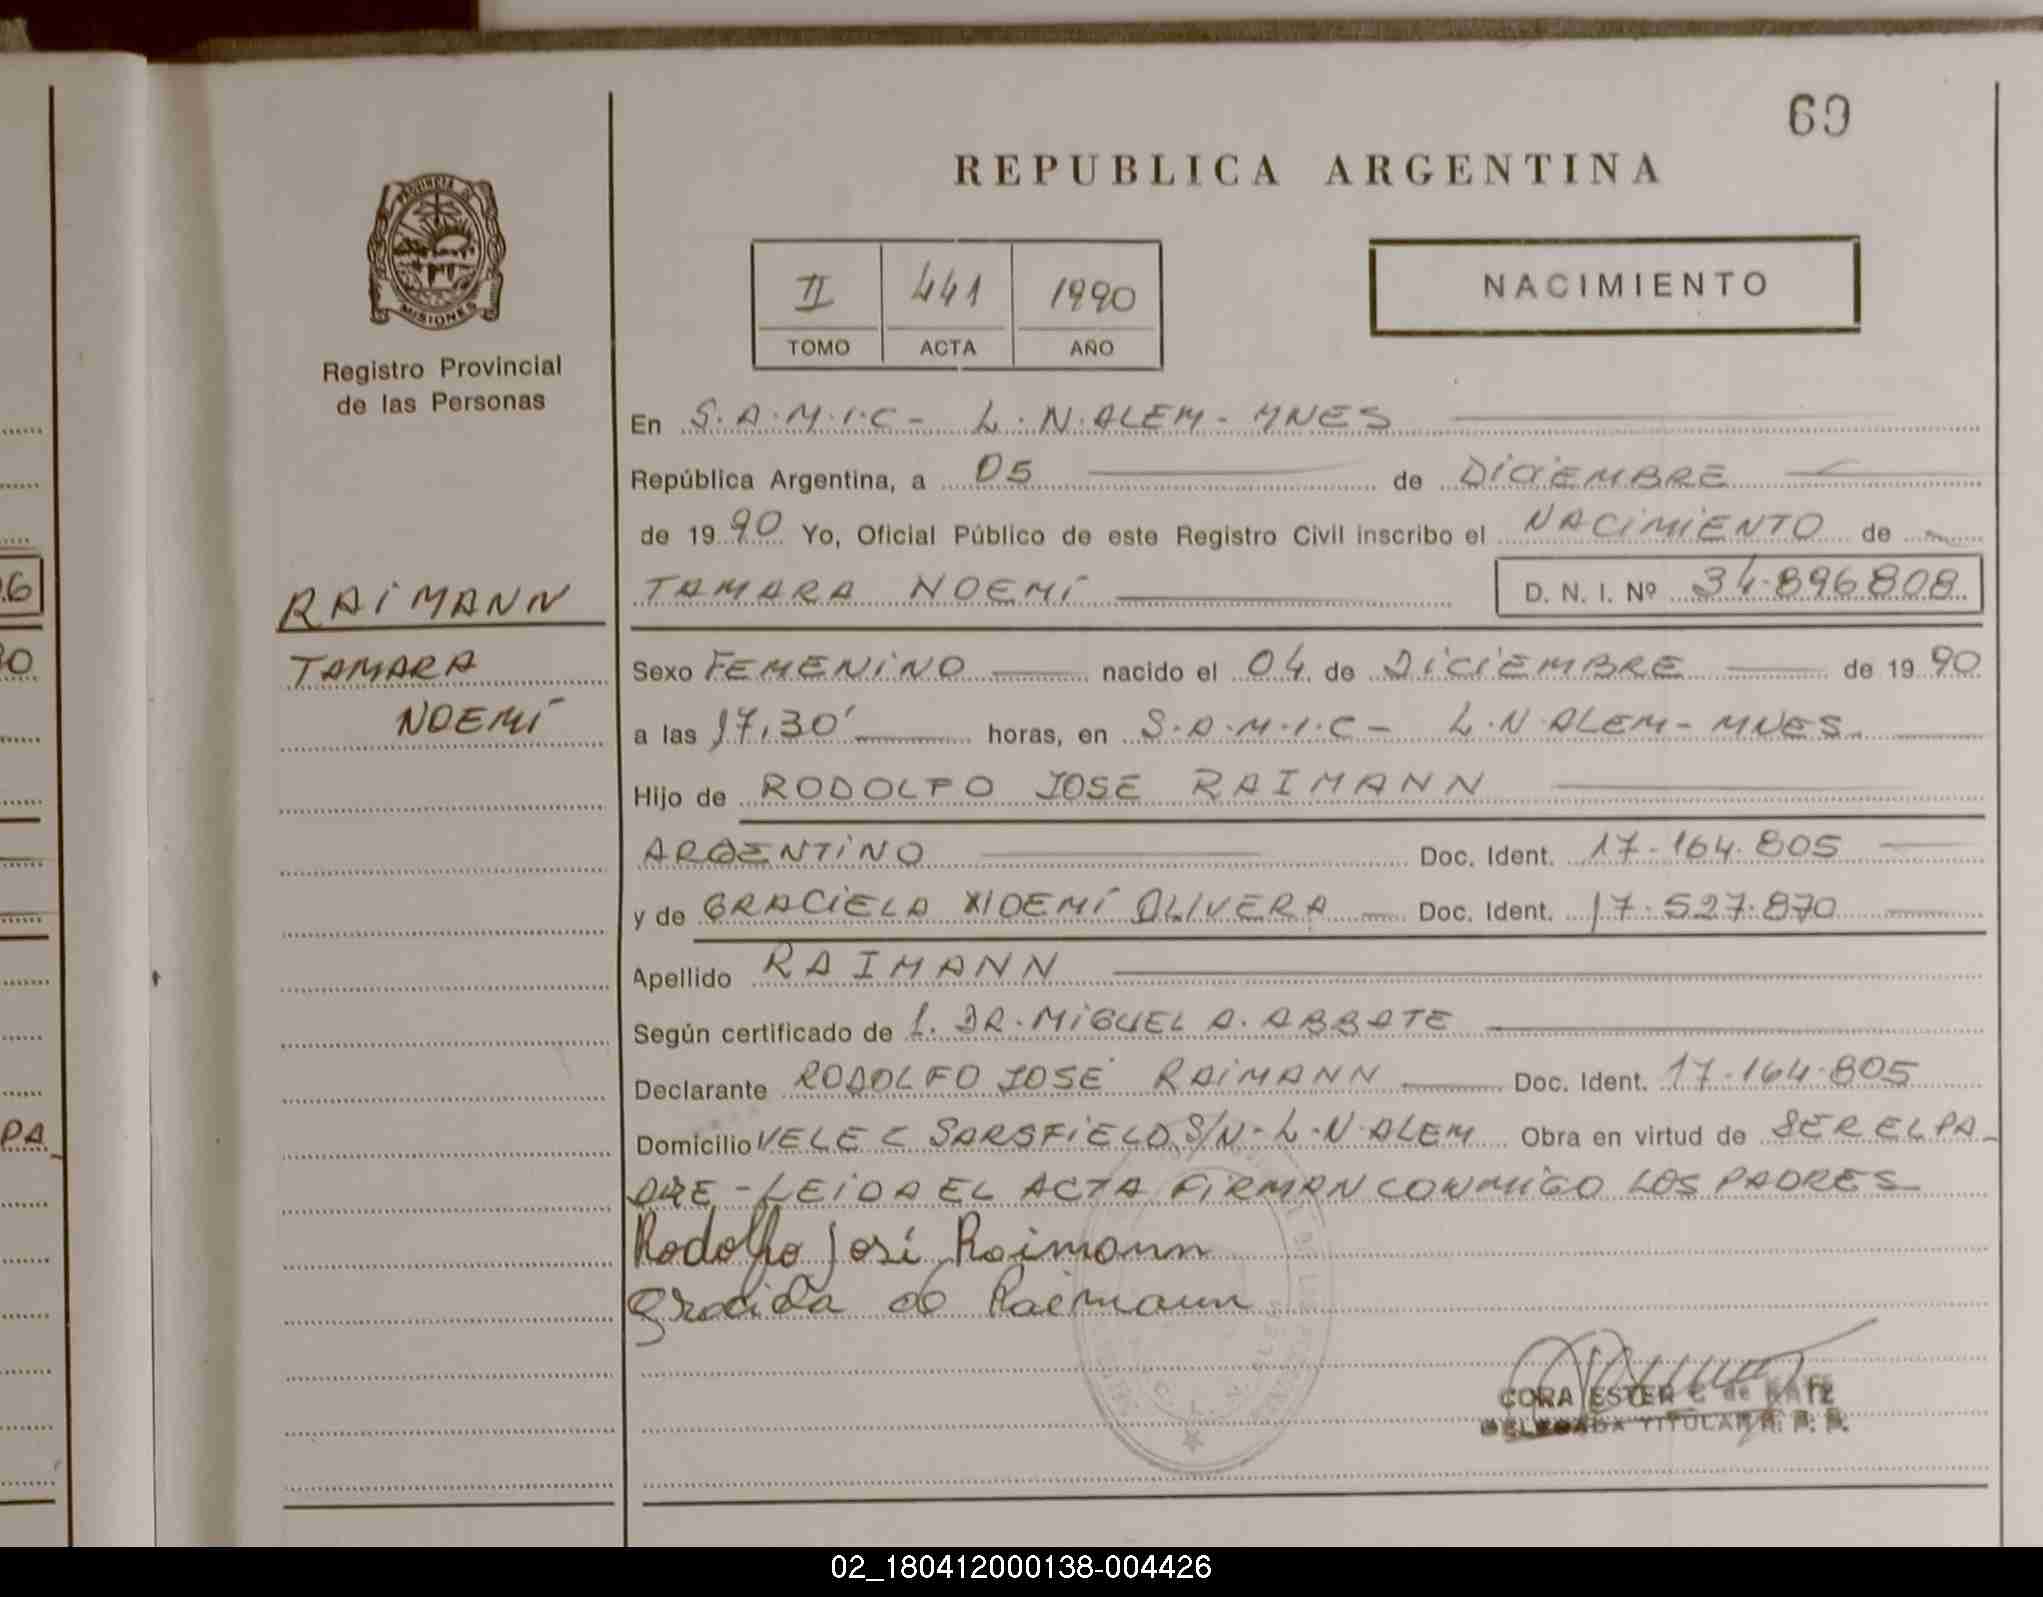 69
REPUBLICA ARGENTINA
PROVINCIA DE
MISIONES
Registro Provincial
de las Personas
II 441 1990
TOMO ACTA AÑO
NACIMIENTO
En S.A.M.I.C- L.N.ALEM- MNES
República Argentina, a 05 de DICIEMBRE
de 1990 Yo, Oficial Público de este Registro Civil inscribo el NACIMIENTO de
TAMARA NOEMÍ D. N. I. Nº 34.896808
RAIMANN
TAMARA
NOEMÍ
Sexo FEMENINO nacido el 04 de DICIEMBRE de 1990
a las 17,30' horas, en S.A.M.I.C- L.N ALEM- MNES
Hijo de RODOLFO JOSE RAIMANN
ARGENTINO Doc. Ident. 17.164.805
y de GRACIELA NOEMÍ OLIVERA Doc. Ident. 17.527.870
Apellido RAIMANN
Según certificado de DR. MIGUEL A. ABBATE
Declarante RODOLFO JOSÉ RAIMANN Doc. Ident. 17.164.805
Domicilio VELEC SARSFIELD S/N- L.N.ALEM Obra en virtud de SER EL PA-
DRE - LEIDA EL ACTA FIRMAN CONMIGO LOS PADRES
Rodolfo José Raimann
Graciela de Raimann
CORA ESTER C de KATZ
DELEGADA TITULAR R. P. P.
06
90
PA
02_180412000138-004426